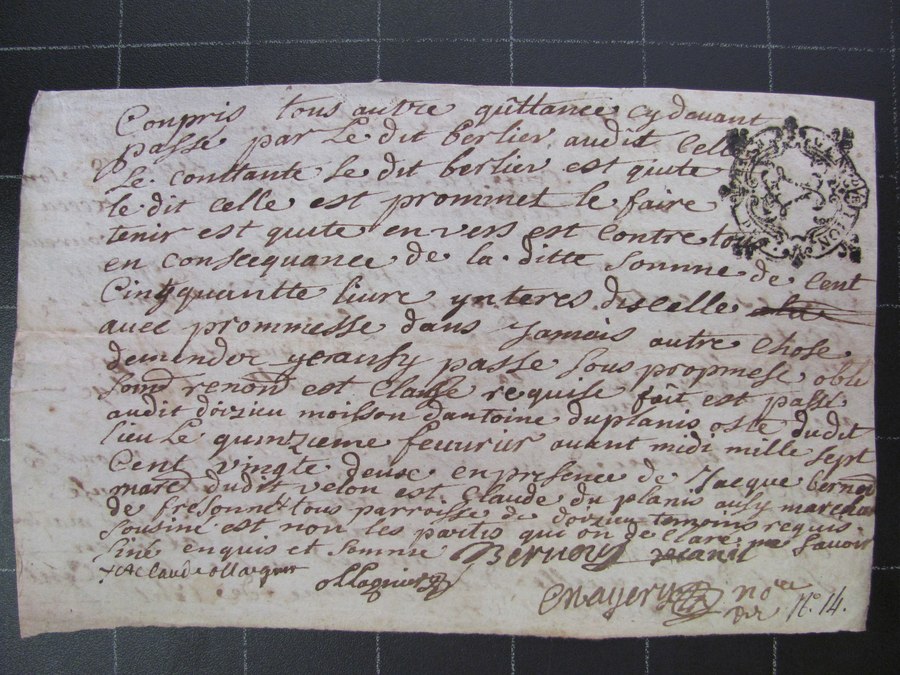 Conpris tous autre quittance cy devant
passe par Le dit berlier audit Celle
Le conttante Le dit berlier est quite
le dit celle est prommet le faire
tenir est quite envers est contre tous
en consecquance de la ditte somme de cent
Cinqquantte livre ynteres discelle
avec prommesse dans Jamais autre Chose
demender passe sous propmese oble
renon est Clause requise fait est passe
audit doizieu moison dantoine duplanis oste dudit
lieu Le quinzieme fevurur avant midi mille sept
Cent vingte deuse en presence de Jacque
marcd dudit velon est Claude du planis ausy
de fresonnet tous parroisse de doizieu temoms requis
sousine est non les partis qui on de Clare ne savoir
sine enquis et somme
ollagnier
Mayery
N.° 14.